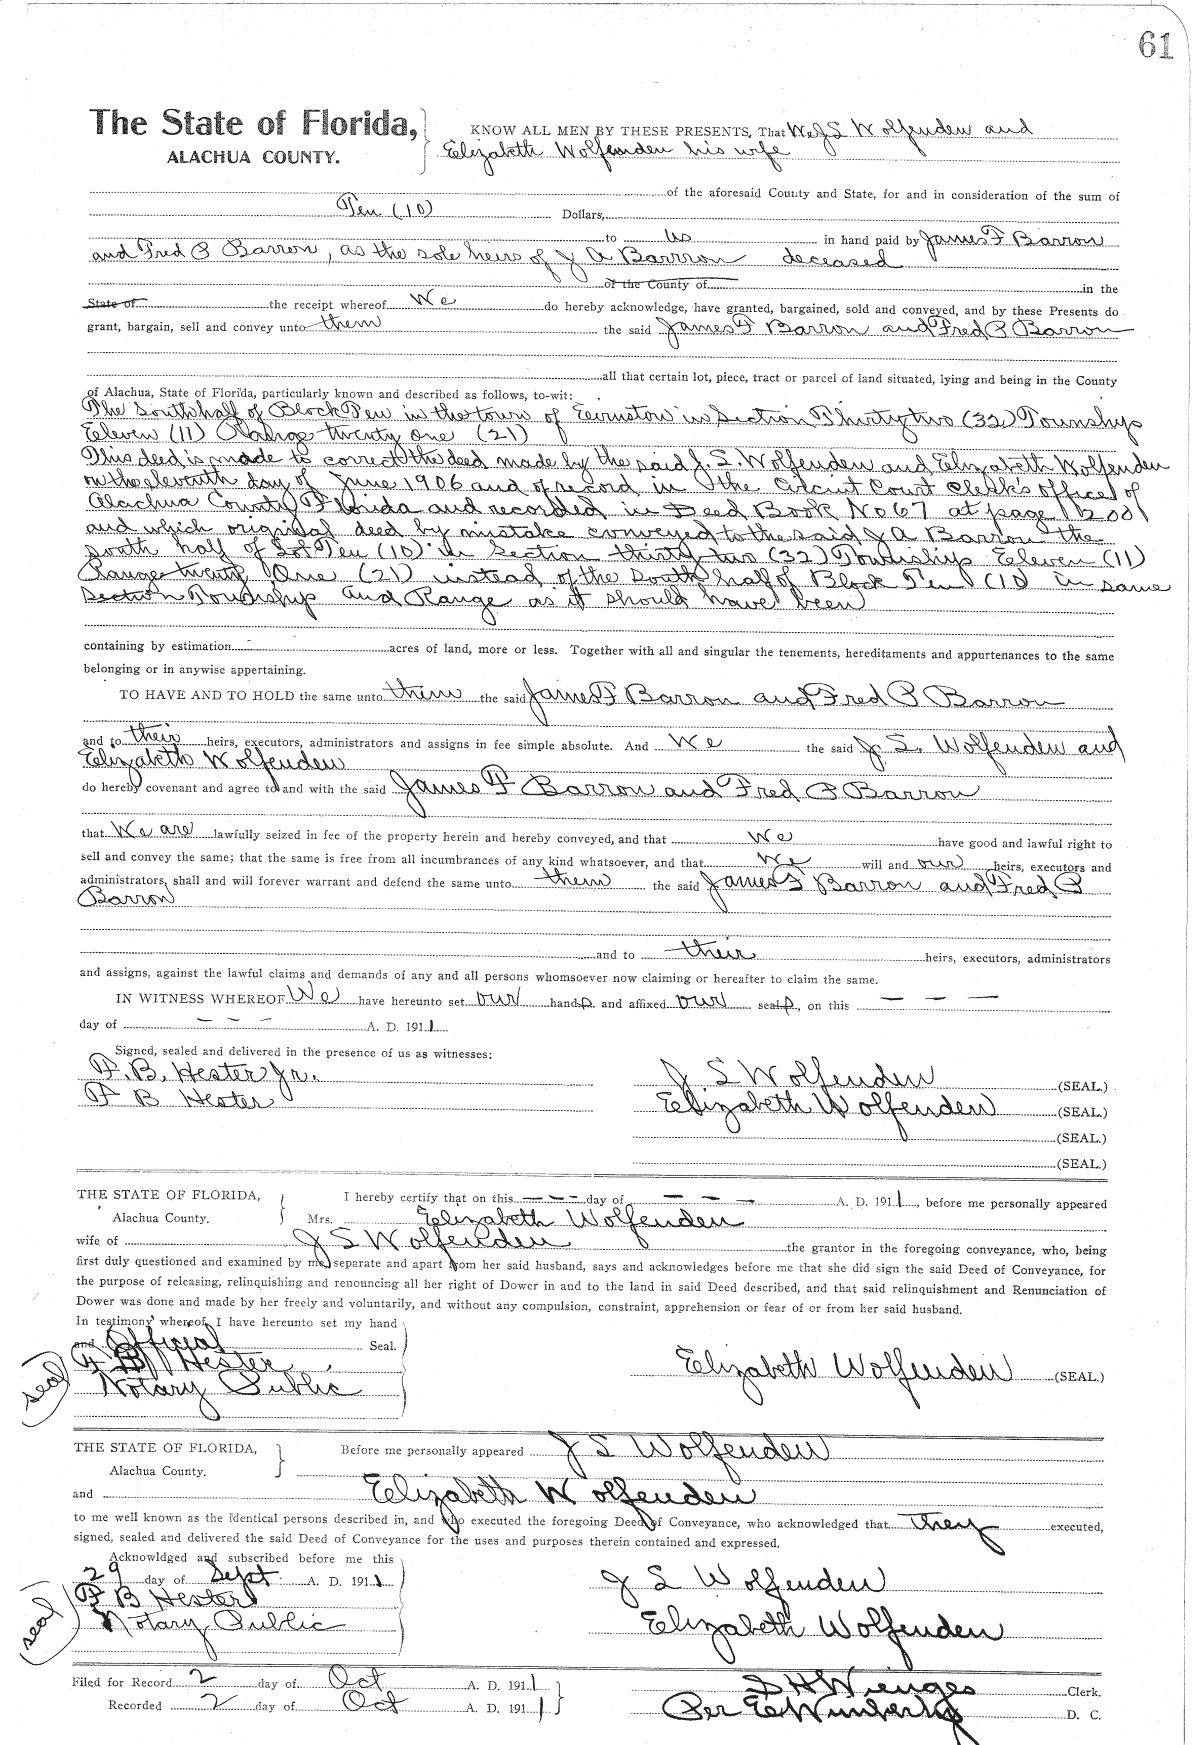 61
The State of Florida,
ALACHUA COUNTY.
KNOW ALL MEN BY THESE PRESENTS, That We J S Wolfenden and
Elizabeth Wolfenden his wife
of the aforesaid County and State, for and in consideration of the sum of
Ten (10) Dollars,
to us in hand paid by James F Barron
and Fred P Barron, as the sole heirs of J A Barrron deceased
of the County of in the
State of the receipt whereof We do hereby acknowledge, have granted, bargained, sold and conveyed, and by these Presents do
grant, bargain, sell and convey unto them the said James F Barron and Fred P Barron
all that certain lot, piece, tract or parcel of land situated, lying and being in the County
of Alachua, State of Florida, particularly known and described as follows, to-wit:
The South half of Block Ten in the town of in Section Thirty two (32) Township
Eleven (11) Range twenty one (21)
This deed is made to correct the deed made by the said J. S. Wolfenden and Elizabeth Wolfenden
on the eleventh day of June 1906 and of record in the Circuit Court Clerk's office of
Alachua County Florida and recorded in Deed Book No 67 at page 200
and which original deed by mistake conveyed to the said J A Barron the
south half of Lot Ten (10) in Section thirty two (32) Township Eleven (11)
Range twenty One (21) instead of the South half of Block Ten (10 in same
Section Township and Range as it should have been
containing by estimation - acres of land, more or less. Together with all and singular the tenements, hereditaments and appurtenances to the same
belonging or in anywise appertaining.
TO HAVE AND TO HOLD the same unto them the said James F Barron and Fred P Barron
and to their heirs, executors, administrators and assigns in fee simple absolute. And We the said J. S. Wolfenden and
Elizabeth Wolfenden
do hereby covenant and agree to and with the said James F Barron and Fred P Barron
that We are lawfully seized in fee of the property herein and hereby conveyed, and that We have good and lawful right to
sell and convey the same; that the same is free from all incumbrances of any kind whatsoever, and that We will and our heirs, executors and
administrators, shall and will forever warrant and defend the same unto them the said James F Barron and Fred P
Barron
and to their heirs, executors, administrators
and assigns, against the lawful claims and demands of any and all persons whomsoever now claiming or hereafter to claim the same.
IN WITNESS WHEREOF We have hereunto set our hands and affixed our seals, on this — — —
day of — — — A. D. 1911
Signed, sealed and delivered in the presence of us as witnesses:
F. B. Hester Jr. J S Wolfenden (SEAL.)
F B Hester Elizabeth Wolfenden (SEAL.)
(SEAL.)
(SEAL.)
THE STATE OF FLORIDA,
Alachua County.
I hereby certify that on this — — — day of — — — A. D. 1911, before me personally appeared
Mrs. Elizabeth Wolfenden
wife of J S Wolfenden the grantor in the foregoing conveyance, who, being
first duly questioned and examined by me, separate and apart from her said husband, says and acknowledges before me that she did sign the said Deed of Conveyance, for
the purpose of releasing, relinquishing and renouncing all her right of Dower in and to the land in said Deed described, and that said relinquishment and Renunciation of
Dower was done and made by her freely and voluntarily, and without any compulsion, constraint, apprehension or fear of or from her said husband.
In testimony whereof I have hereunto set my hand
and Official Seal.
F B Hester
Notary Public
(seal)
Elizabeth Wolfenden (SEAL.)
THE STATE OF FLORIDA,
Alachua County.
Before me personally appeared J S Wolfenden
and Elizabeth Wolfenden
to me well known as the identical persons described in, and who executed the foregoing Deed of Conveyance, who acknowledged that they executed,
signed, sealed and delivered the said Deed of Conveyance for the uses and purposes therein contained and expressed.
Acknowldged and subscribed before me this
29 day of Sept A. D. 1911
F B Hester
Notary Public
(seal)
J S Wolfenden
Elizabeth Wolfenden
Filed for Record 2 day of Oct A. D. 1911
Recorded 2 day of Oct A. D. 1911
S H Wienges Clerk.
Per D. C.